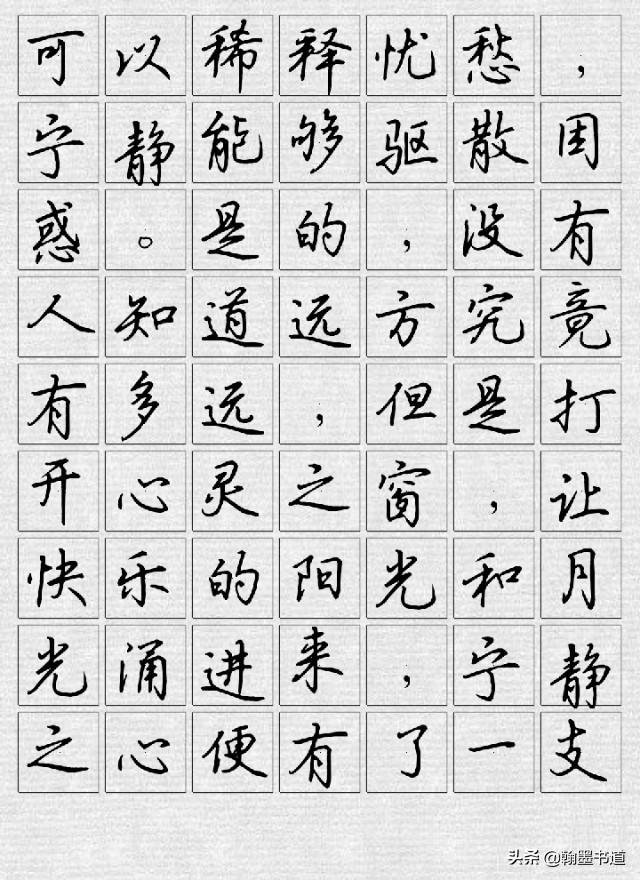 可以稀释忧愁，
宁静能够驱散困
惑。是的，没有
人知道远方究竟
有多远，但是打
开心灵之窗，让
快乐的阳光和月
光涌进来，宁静
之心便有了一支
头条 @翰墨书道